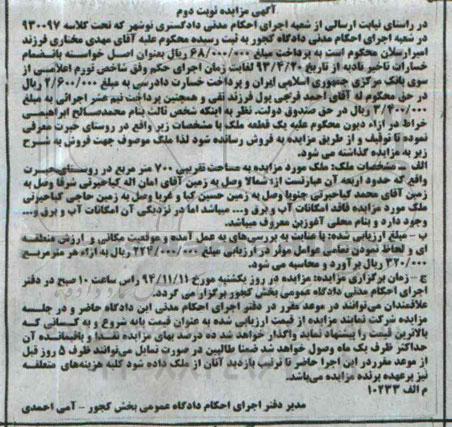 آگهی مزایده نوبت دوم
در راستای نیابت ارسالی از شعبه اجرای احکام مدنی دادگستری نوشهر که تحت کلاسه ۹۳۰۰۹۷
در شعبه اجرای احکام مدنی دادگاه کجور به ثبت رسیده محکوم علیه آقای مهدی مختاری فرزند
امیرارسلان محکوم است به پرداخت مبلغ ۶۸/۰۰۰/۰۰۰ ریال بعنوان اصل خواسته بانضمام
خسارات تاخیر تادیه از تاریخ ۹۳/۴/۳۰ لغایت زمان اجرای حکم وفق شاخص تورم اعلامی از
سوی بانک مرکزی جمهوری اسلامی ایران و پرداخت خسارت دادرسی به مبلغ ۲/۶۰۰/۰۰۰ ریال
در حق محکوم له آقای احمد فرجی پول فرزند نقی و همچنین پرداخت نیم عشر اجرائی به مبلغ
۳/۴۰۰/۰۰۰ ریال در حق صندوق دولت. نظر به اینکه شخص ثالث بنام محمدصالح ابراهیمی
خراط در ازاء دیون محکوم علیه یک قطعه ملک با مشخصات زیر واقع در روستای خیرت معرفی
نموده تا توقیف و از طریق مزایده به فروش رسانده شود لذا ملک موصوف جهت فروش به شرح
زیر به مزایده گذاشته می شود.
الف - مشخصات ملک: ملک مورد مزایده به مساحت تقریبی ۷۰۰ متر مربع در روستای خیرت
واقع که حدود اربعه آن عبارتست از: شمالا وصل به زمین آقای امان اله کیاخیرتی شرقا وصل به
زمین آقای محمد کیاخیرتی جنوبا وصل به زمین حسین کیا و غربا وصل به زمین حاجی کیاخیرتی
ملک مورد مزایده فاقد امکانات آب و برق و... میباشد اما در نزدیکی آن امکانات آب و برق و...
وجود دارد و بنام محلی آغوزبن معروف میباشد.
ب - مبلغ ارزیابی شده: با عنایت به بررسی های به عمل آمده و موقعیت مکانی و ارزش منطقه
ای و لحاظ نمودن تمامی عوامل موثر در ارزیابی مبلغ ۲۲۴/۰۰۰/۰۰۰ ریال به ازاء هر متر مربع
۳۲۰/۰۰۰ ریال برآورد و محاسبه می شود.
ج - زمان برگزاری مزایده: مزایده در روز یکشنبه مورخ ۹۴/۱۱/۱۱ راس ساعت ۱۰ صبح در دفتر
اجرای احکام مدنی دادگاه عمومی بخش کجور برگزار می گردد.
علاقمندان می توانند در موعد مقرر در دفتر اجرای احکام مدنی این دادگاه حاضر و در جلسه
مزایده شرکت نمایند مزایده از قیمت ارزیابی شده به عنوان قیمت پایه شروع و به کسانی که
بالاترین قیمت را پیشنهاد نماید واگذار خواهد شد ده درصد بهای مزایده نقدا و باقیمانده آن
حداکثر ظرف یک ماه وصول خواهد شد ضمنا طالبین در صورت تمایل می توانند ظرف ۵ روز قبل
از موعد مقرر در این اجرا حاضر تا ترتیب بازدید آنان از ملک داده شود کلیه هزینه های متعلقه
نیز برعهده برنده مزایده می باشد.
م الف ۱۰۲۳۳
مدیر دفتر اجرای احکام دادگاه عمومی بخش کجور - آمی احمدی